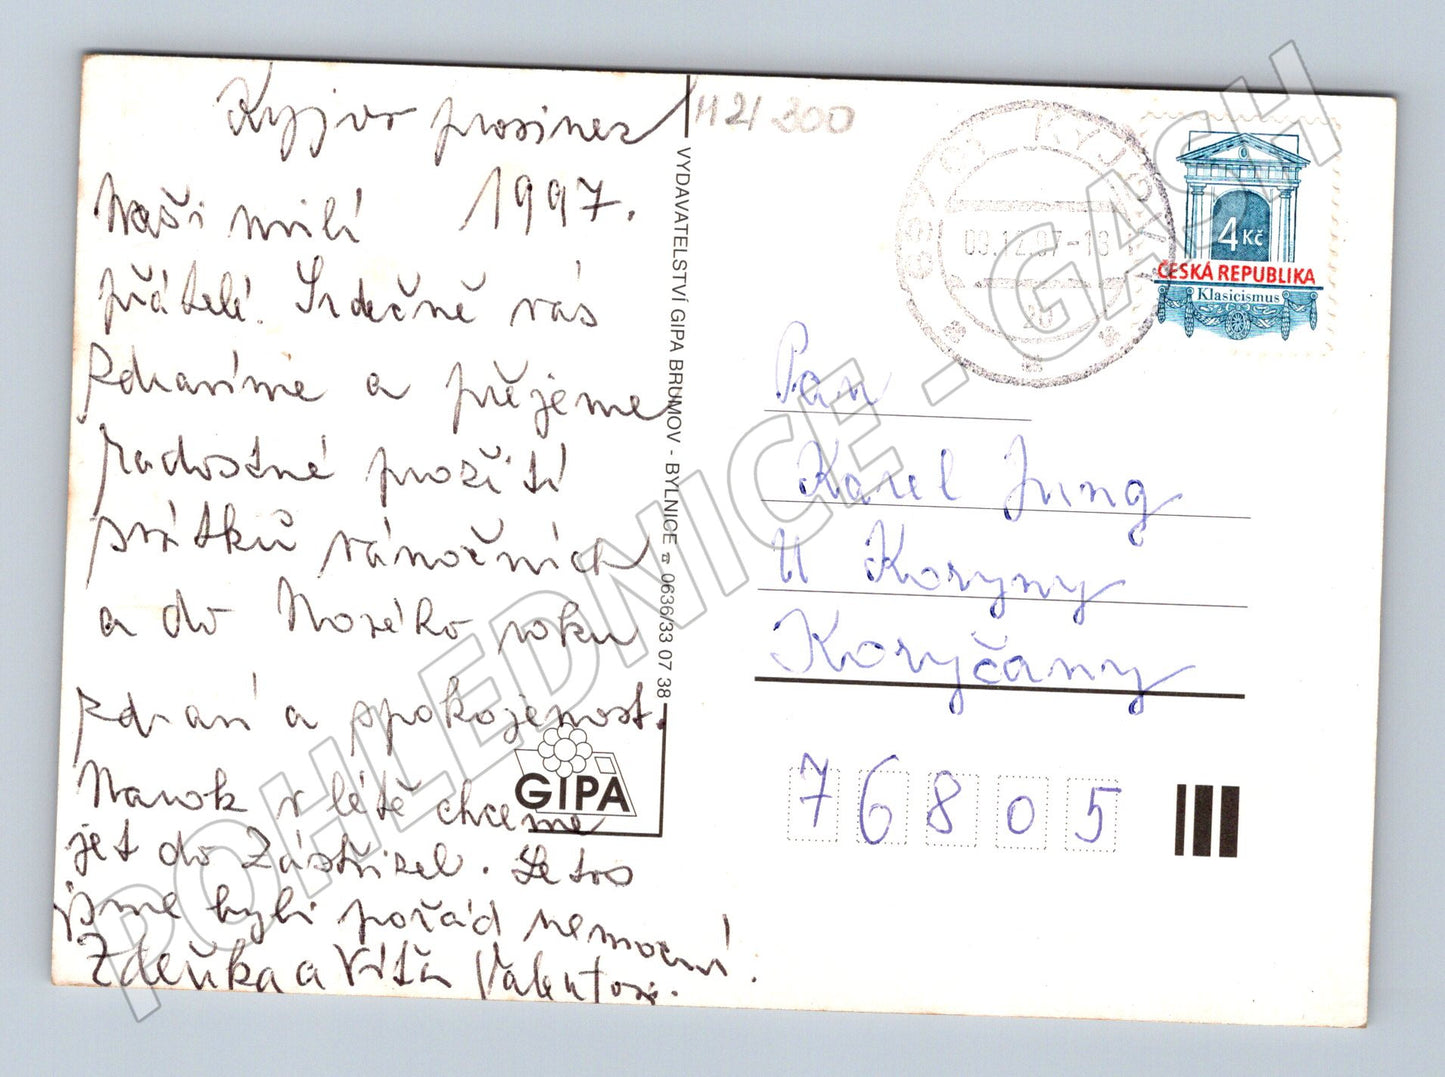 Kyjov prosinec
1997.
Naši milí
přátelé. Srdečně vás
zdravíme a přejeme
radostné prožití
svátků vánočních
a do Nového roku
zdraví a spokojenost.
Na rok v létě chceme
jet do Zástřizel. Letos
jsme byli pořád nemocní.
Zdeňka a Víťa Valentovi.
VYDAVATELSTVÍ GIPA BRUMOV - BYLNICE ☎ 0636/33 07 38
GIPA
H21 300
697 01 KYJOV 1
09.12.97-18
4 Kč
ČESKÁ REPUBLIKA
Klasicismus
Pan
Karel Jung
U Koryny
Koryčany
76805
POHLEDNICE - GASH